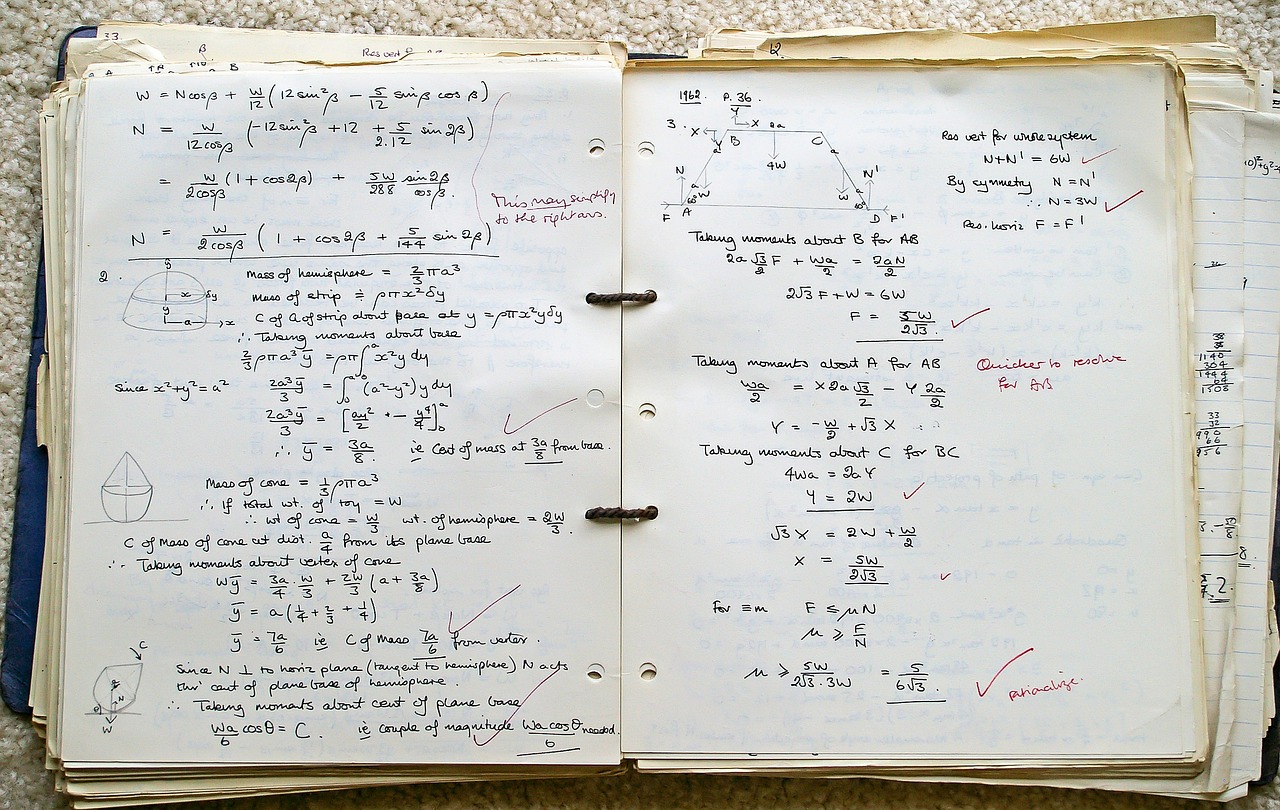 33.
β
Res vert
B
W = Ncosβ + W/12 (12sin²β − 5/12 sinβ cosβ)
N = W/12cosβ (−12sin²β + 12 + 5/2.12 sin2β)
= W/2cosβ (1 + cos2β) + 5W/288 sin2β/cosβ.
This may simplify
to the right ans.
N = W/2cosβ (1 + cos2β + 5/144 sin2β)
2.
y
x δy
y
a → x
Mass of hemisphere = 2/3 πa³
Mass of strip ≑ ρπx²δy
C of G of strip about base at y = ρπx²yδy
∴ Taking moments about base
2/3 ρπa³ȳ = ρπ∫₀ᵃ x²y dy
Since x²+y²=a² 2a³ȳ/3 = ∫₀ᵃ (a²−y²)y dy
2a³ȳ/3 = [ay²/2 − y⁴/4]₀ᵃ
∴ ȳ = 3a/8 ie Cent of mass at 3a/8 from base.
Mass of cone = 1/3 ρπa³
∴ If total wt. of toy = W
∴ wt of cone = W/3 wt. of hemisphere = 2W/3.
C of Mass of cone at dist. a/4 from its plane base
∴ Taking moments about vertex of cone
Wȳ = 3a/4 . W/3 + 2W/3 (a + 3a/8)
ȳ = a(1/4 + 2/3 + 1/4)
ȳ = 7a/6 ie C of Mass 7a/6 from vertex.
C
N
θ
W
Since N ⊥ to horiz plane (tangent to hemisphere) N acts
thro' cent of plane base of hemisphere.
∴ Taking moments about cent of plane base
Wa/6 cosθ = C. ie couple of magnitude Wa cosθ/6 needed.
12.
1962. P. 36.
Y
3. X X 2a
Y B C
a a
4W
N N'
a W W a
60° 60°
F A D F'
Res vert for whole system
N+N' = 6W
By symmetry N = N'
∴ N = 3W
Res. horiz F = F'
Taking moments about B for AB
2a √3/2 F + Wa/2 = 2aN/2
2√3 F + W = 6W
F = 5W/2√3.
Taking moments about A for AB
Quicker to resolve
for AB
Wa/2 = X 2a √3/2 − Y 2a/2
Y = −W/2 + √3 X
Taking moments about C for BC
4Wa = 2aY
Y = 2W
√3 X = 2W + W/2
X = 5W/2√3
For ≡m F ≤ μN
μ ≥ F/N
μ ≥ 5W/2√3.3W = 5/6√3.
rationalize.
38
38
1140
304
1444
64
1508
33
32
990
66
956